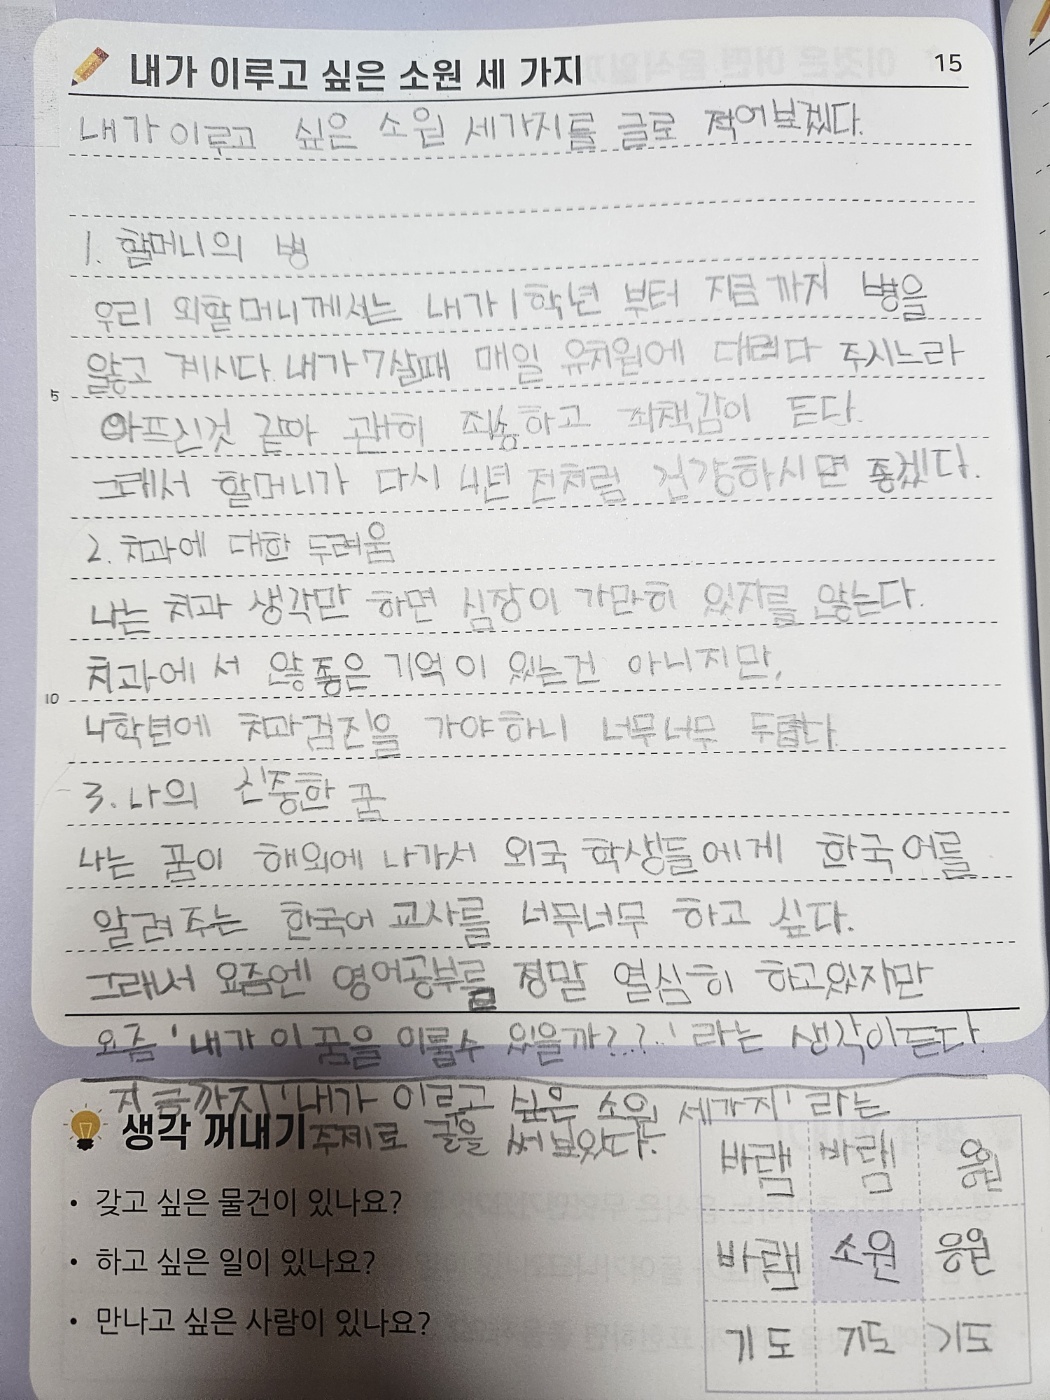 내가 이루고 싶은 소원 세 가지
15
내가 이루고 싶은 소원 세가지를 글로 적어보겠다.
1. 할머니의 병
우리 외할머니께서는 내가 1학년 부터 지금 까지 병을
앓고 계시다. 내가 7살때 매일 유치원에 대려다 주시느라
5
아프신것 같아 괜히 죄송하고 죄책감이 든다.
그래서 할머니가 다시 4년 전처럼 건강하시면 좋겠다.
2. 치과에 대한 두려움
나는 치과 생각만 하면 심장이 가만히 있지를 않는다.
치과에서 안좋은 기억이 있는건 아니지만,
10
4학년에 치과검진을 가야하니 너무너무 두렵다.
3. 나의 신중한 꿈
나는 꿈이 해외에 나가서 외국 학생들에게 한국어를
알려주는 한국어 교사를 너무너무 하고 싶다.
그래서 요즘엔 영어공부를 정말 열심히 하고있지만
요즘 '내가 이 꿈을 이룰수 있을까??' 라는 생각이든다.
지금까지 '내가 이루고 싶은 소원 세가지' 라는
주제로 글을 써보았다.
생각 꺼내기
• 갖고 싶은 물건이 있나요?
• 하고 싶은 일이 있나요?
• 만나고 싶은 사람이 있나요?
바램 바램 응원
바램 소원 응원
기도 기도 기도